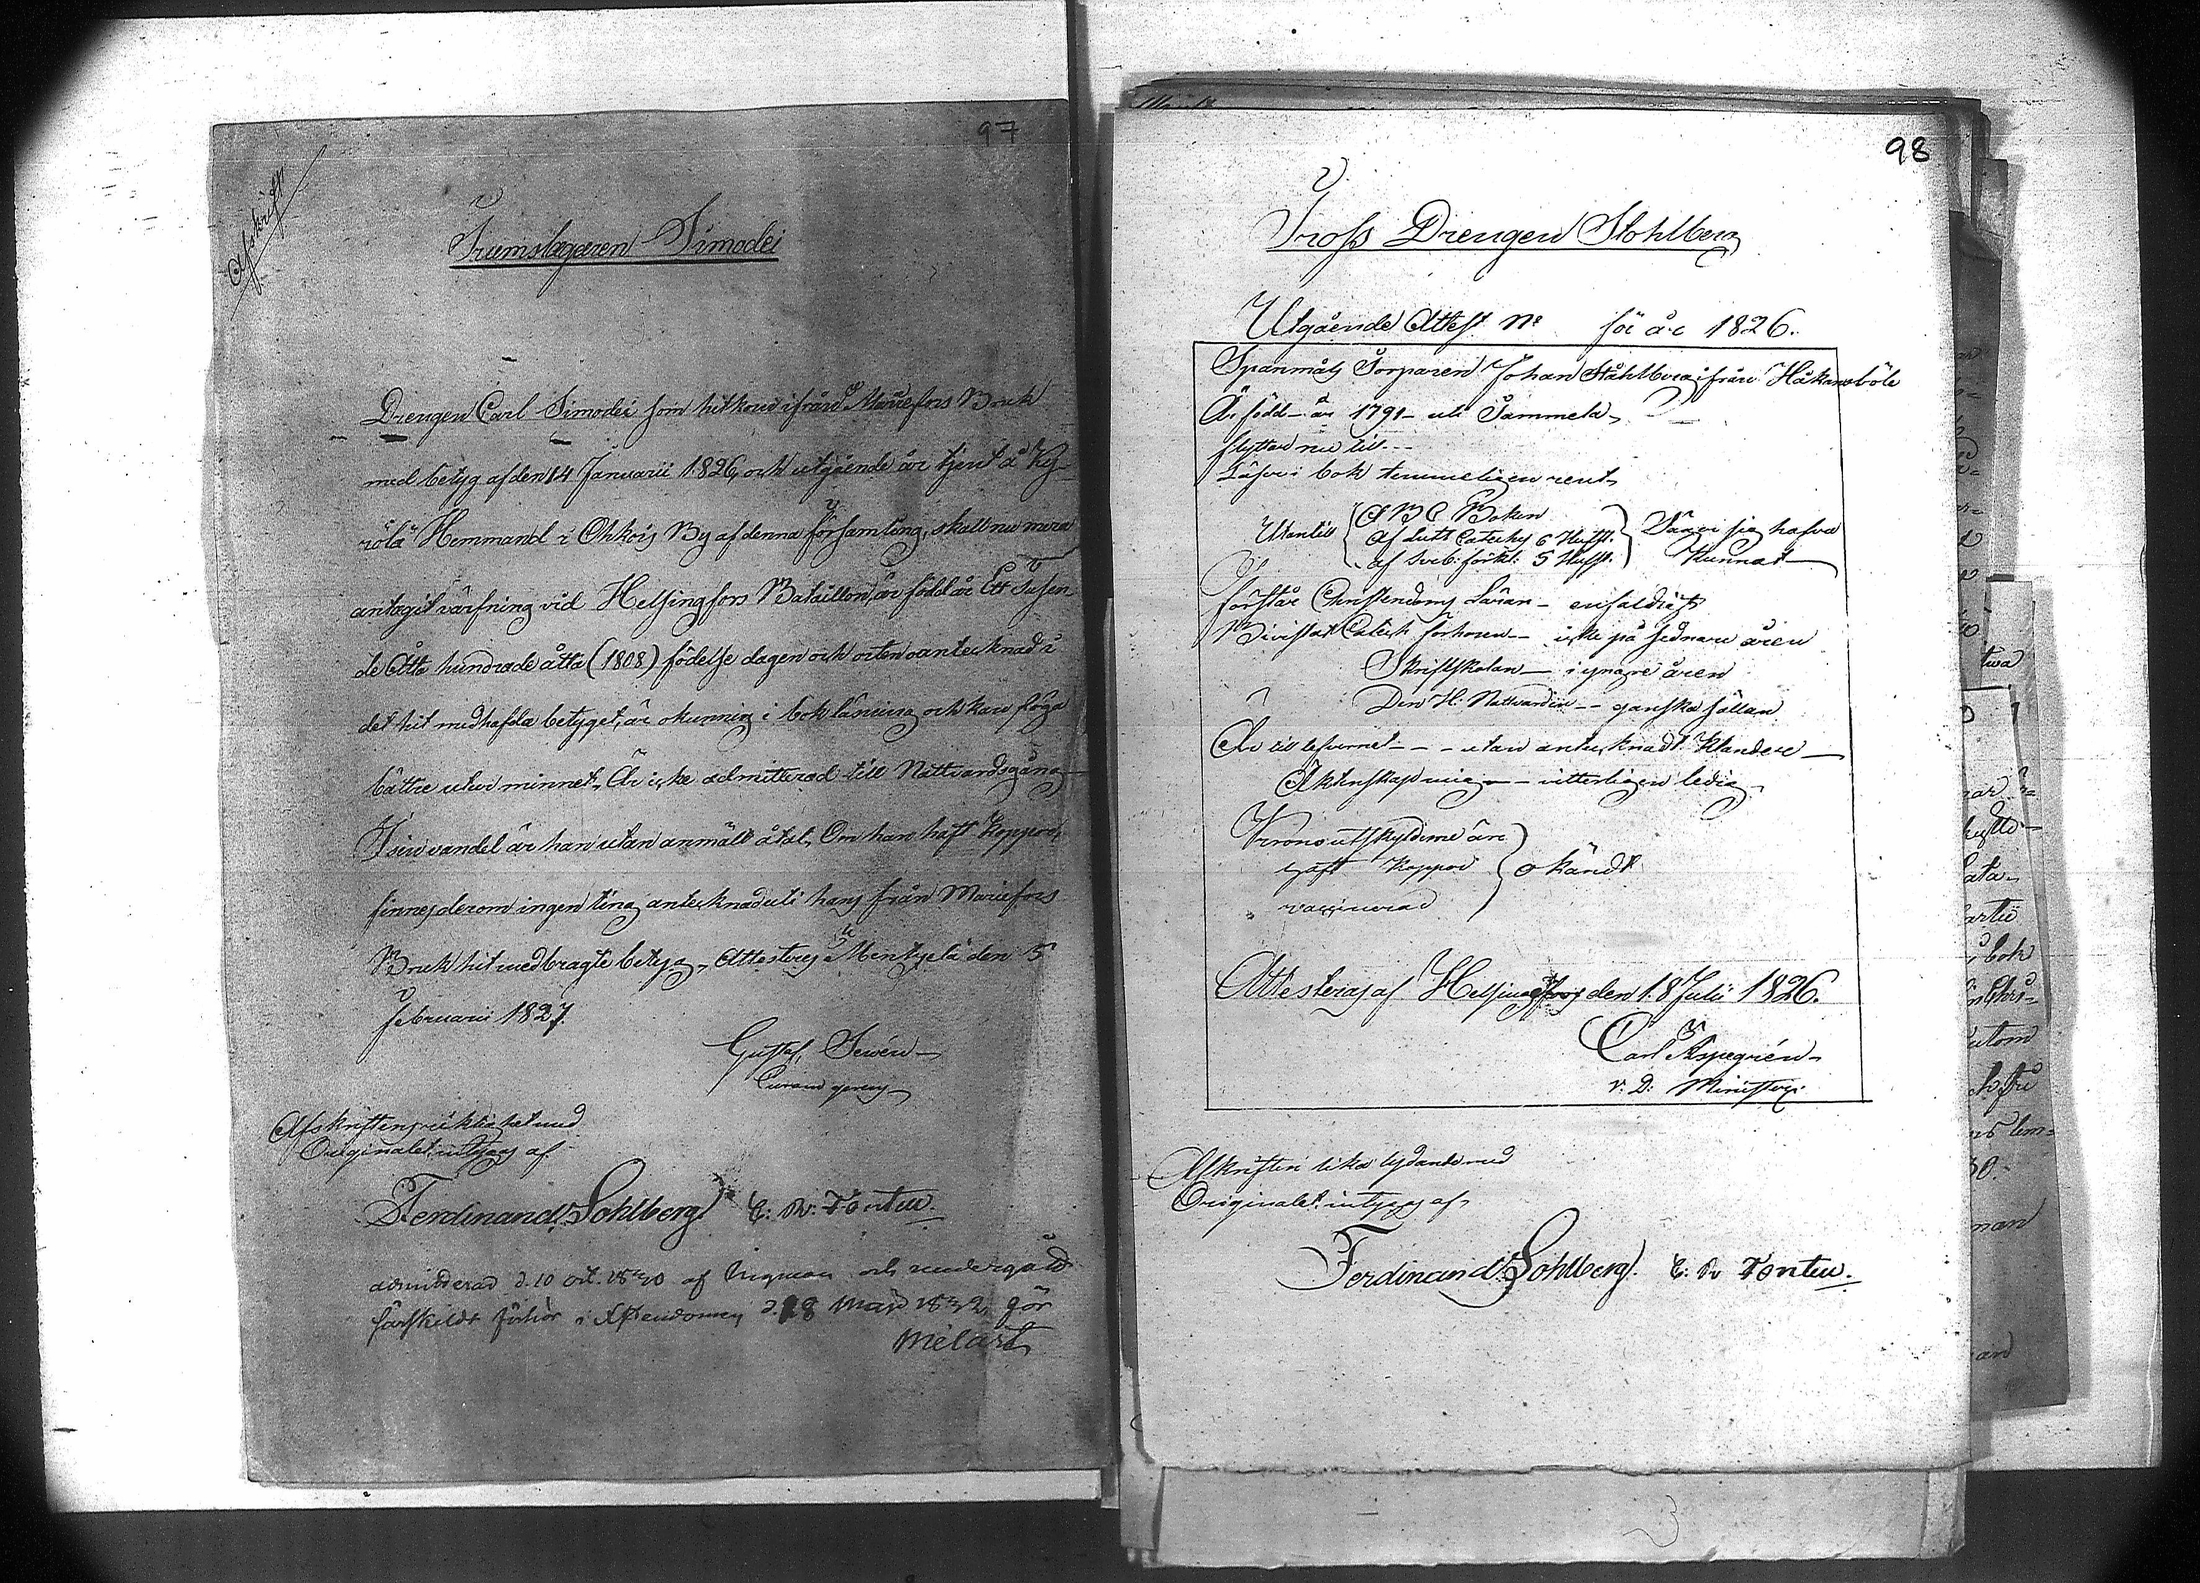 97
Afskrift
Trumslagaren Simodei
Drengen Carl Simodei som hitkom ifrån Mariefors Bruk
med betyg af den 14 Januarii 1826, och utgående år tjent å Ky-
rölä Hemmand i Ohkois By af denna församling, skall nu mera
antagit värfning vid Helsingfors Bataillon, är född år Ett Tusen
de Åtta hundrade åtta (1808) födelse dagen och orten oantecknad i
det hit medhafda betyget, är okunnig i bok läsning och kan föga
bättre utur minnet, Är icke admitterad till Nattvardsgång
I sin vandel är han utan anmält åtal, Om han haft koppor,
finnes derom ingen ting antecknad uti hans från Mariefors
Bruk hit medbragte betyg, Attesteras Mentzelä den 5
Februarii 1827.
Gustaf Sevén
Afskriftens riktighet med
Originalet intygas af
Ferdinand Sohlberg E. R. Tonteu.
admitterad d. 10 oct. 1830 af Ingman och undergått
särskildt förhör i Xstendomen d. 28 Maji 1832, gör
Melart
98
Tross Drengen Stohlberg
Utgående Attest No för år 1826.
Spanmåls Torparen Johan Ståhlberg ifrån Håkansböle
Är född år 1791 uti Sammela
flyttar nu till
Läser i bok temmeligen rent
Utantill
A B C Boken
af Luth Cateches 6 Hufst.
af Sveb: förkl: 5 Hufst.
Säger sig hafva
Kunnat
förstår Christendoms Läran - enfaldigt
Bivistat Catech förhören - icke på sednare åren
Skriftskolan - i yngre åren
Den H. Nattvarden - ganska sällan
Är till lefvernet - utan antecknadt klander
Äktenskaps mig - vitterligen ledig
Kronoutskylderne äre
haft koppor
vaccinerad
okändt
Attesteras af Helsingfors den 18 Julii 1826.
Carl Aspegrén
v. D. Minister
Afskriften lika lydande med
Originalet intygas af
Ferdinand Sohlberg. E. R. Tonteu.